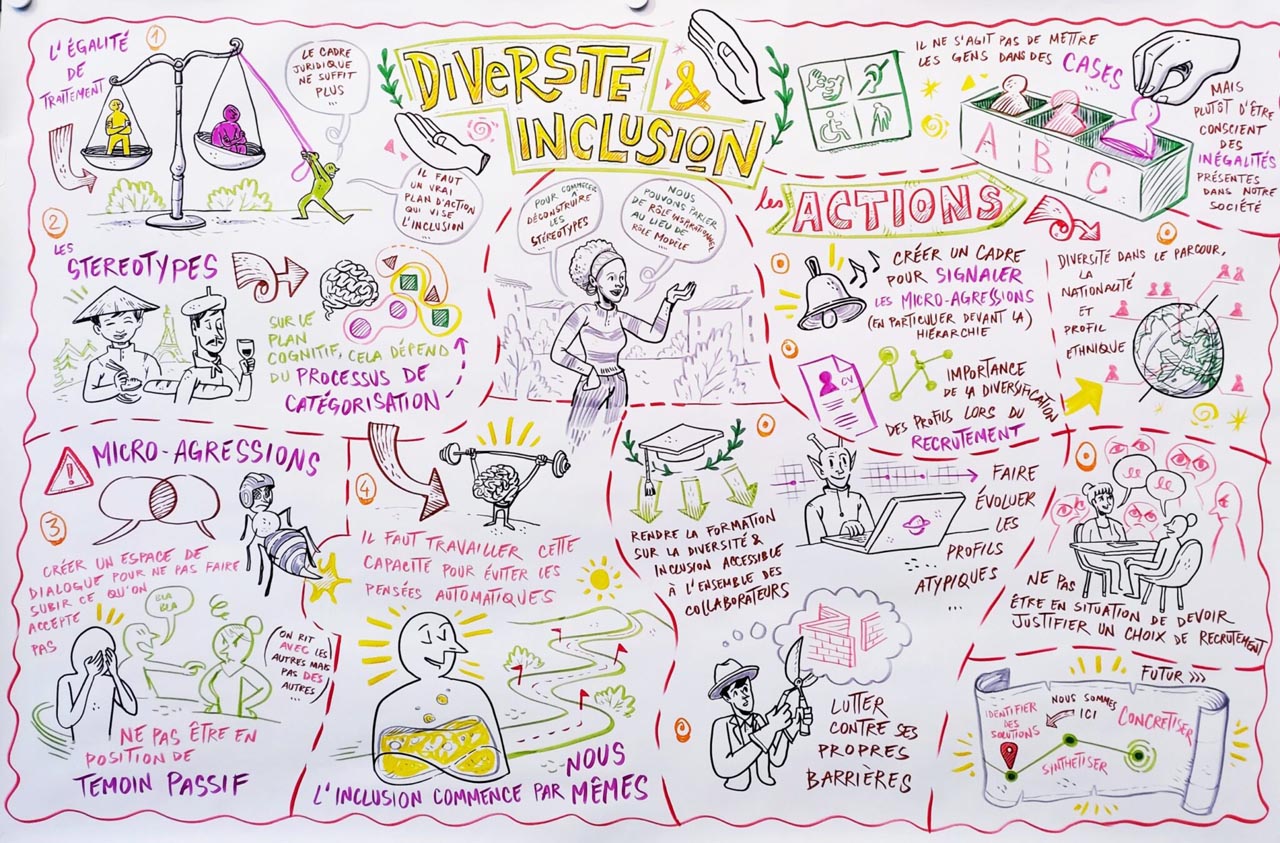 1
L'ÉGALITÉ
DE
TRAITEMENT
LE CADRE
JURIDIQUE
NE SUFFIT
PLUS ...
IL FAUT
UN VRAI
PLAN D'ACTION
QUI VISE
L'INCLUSION
DIVERSITÉ
&
INCLUSION
IL NE S'AGIT PAS DE METTRE
LES GENS DANS DES CASES...
A B C
MAIS
PLUTÔT D'ÊTRE
CONSCIENT
DES
INÉGALITÉS
PRÉSENTES
DANS NOTRE
SOCIÉTÉ
2
LES
STEREOTYPES
SUR LE
PLAN
COGNITIF, CELA DÉPEND
DU PROCESSUS DE
CATÉGORISATION
POUR COMMENCER
À
DÉCONSTRUIRE
LES
STÉRÉOTYPES
...
NOUS
POUVONS PARLER
DE RÔLE INSPIRATIONNEL
AU LIEU DE
RÔLE MODÈLE
...
les ACTIONS
CRÉER UN CADRE
POUR SIGNALER
LES MICRO-AGRESSIONS
(EN PARTICULIER DEVANT LA)
HIÉRARCHIE
CV
IMPORTANCE
DE LA DIVERSIFICATION
DES PROFILS LORS DU
RECRUTEMENT
DIVERSITÉ DANS LE PARCOUR,
LA
NATIONALITÉ
ET
PROFIL
ETHNIQUE
MICRO-AGRESSIONS
3
CRÉER UN ESPACE DE
DIALOGUE POUR NE PAS FAIRE
SUBIR CE QU'ON
ACCEPTE
PAS
BLA
BLA
(ON RIT
AVEC LES
AUTRES MAIS
PAS DES
AUTRES...
NE PAS ÊTRE EN
POSITION DE
TEMOIN PASSIF
4
IL FAUT TRAVAILLER CETTE
CAPACITÉ POUR ÉVITER LES
PENSÉES AUTOMATIQUES
L'INCLUSION COMMENCE PAR NOUS
MÊMES
RENDRE LA FORMATION
SUR LA DIVERSITÉ &
INCLUSION ACCESSIBLE
À L'ENSEMBLE DES
COLLABORATEURS
FAIRE
ÉVOLUER
LES
PROFILS
ATYPIQUES
...
NE PAS
ÊTRE EN SITUATION DE DEVOIR
JUSTIFIER UN CHOIX DE RECRUTEMENT
LUTTER
CONTRE SES
PROPRES
BARRIÈRES
FUTUR >>>
IDENTIFIER
DES
SOLUTIONS
NOUS SOMMES
ICI
SYNTHÉTISER
CONCRETISER